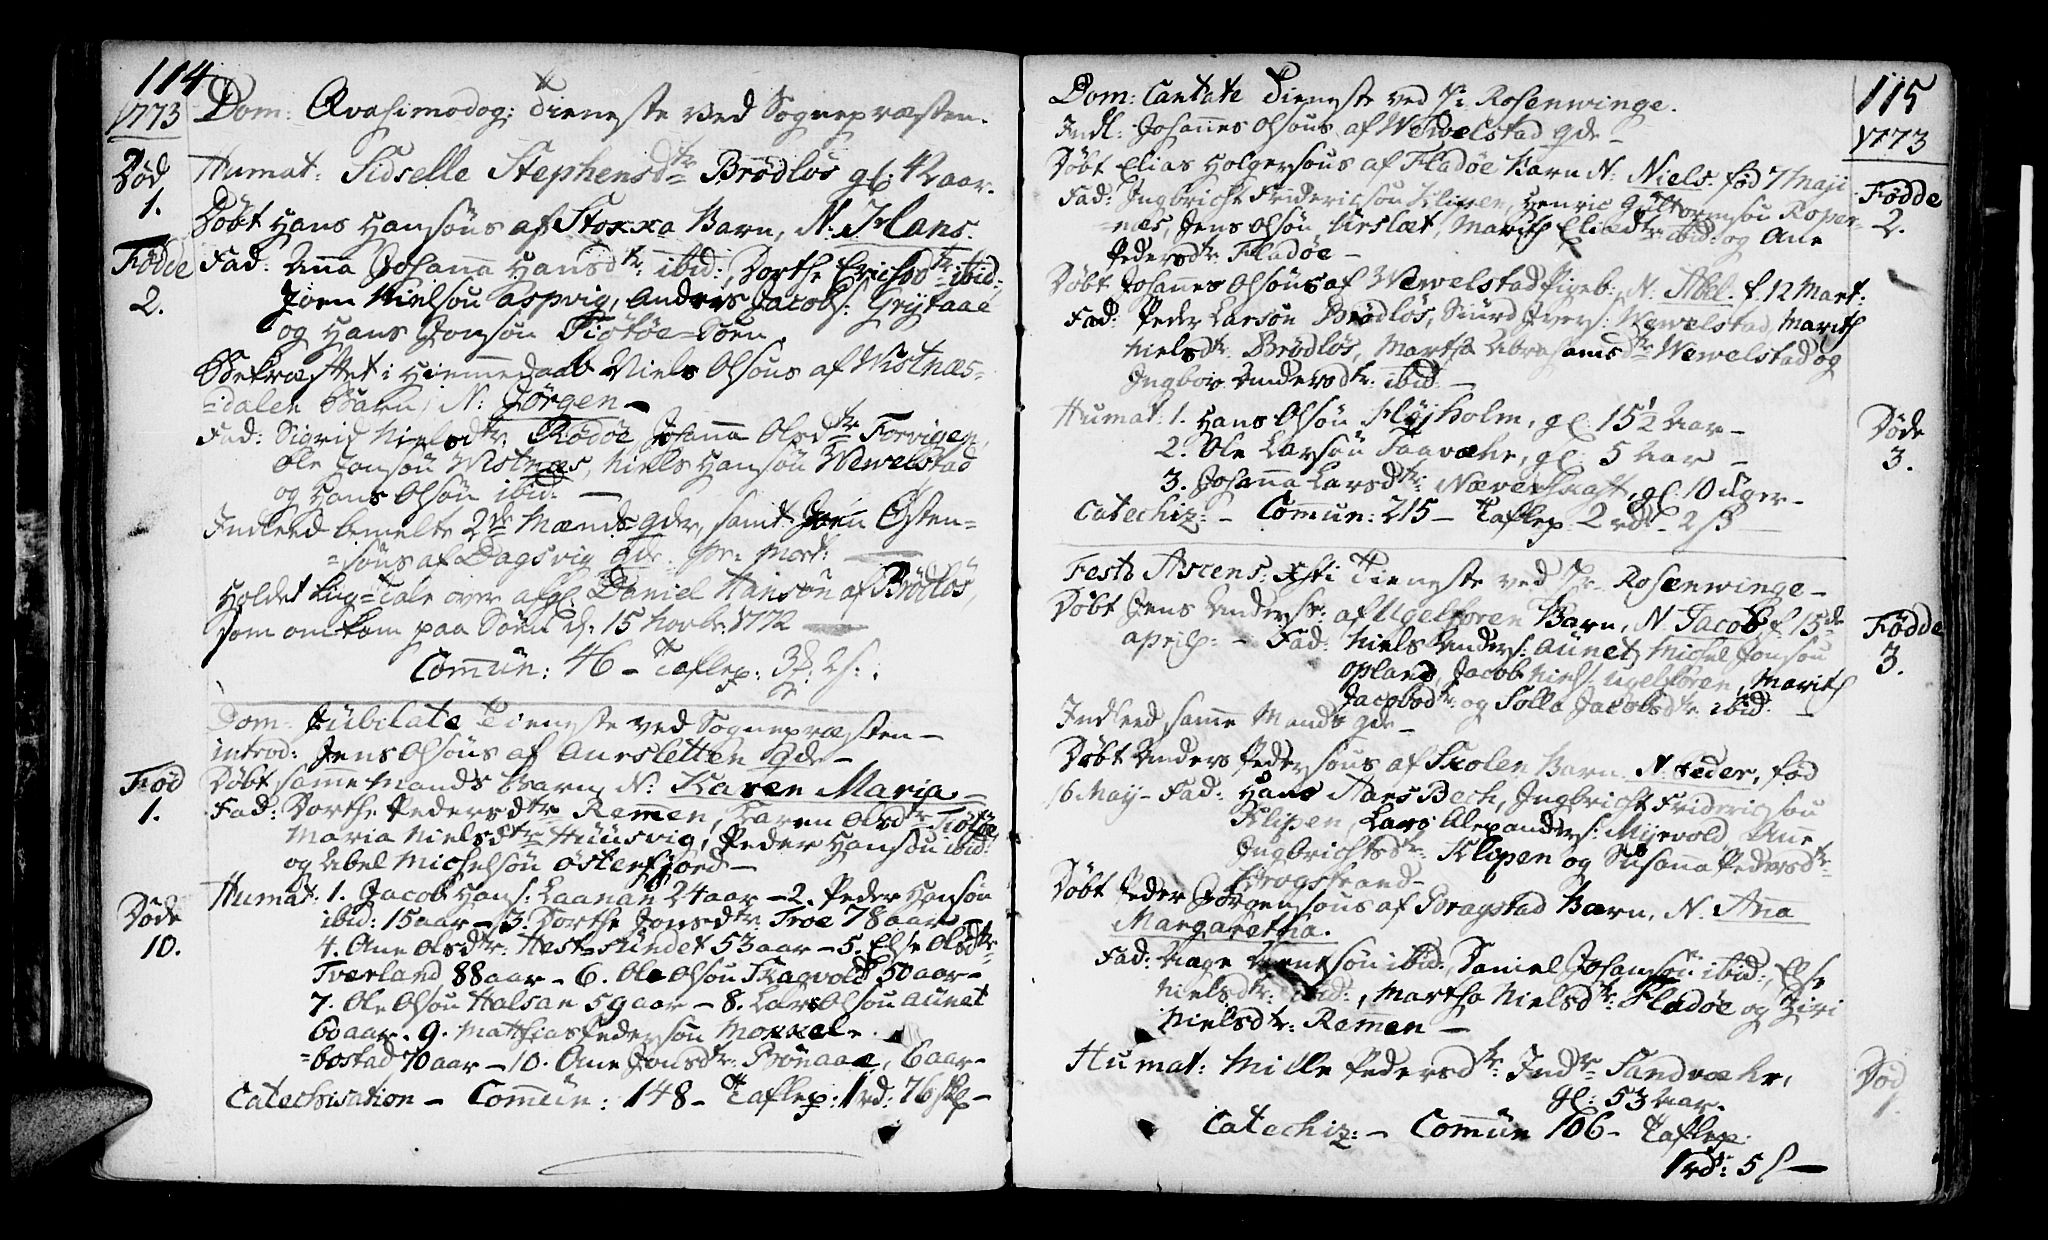 114
1773
Dom: Qvasimodog: Tieneste ved Sognepræsten.
Død
1.
Humat: Sidselle Stephensdtr Brødløs gl. 42 aar.
Døbt Hans Hansöns af Stokka Barn, N. Hans.
Fødde
2.
Fad: Anna Johanna Hansdtr ibid:, Dorthe Erichsdtr ibid:,
Joen Nielsön Aspvig, Anders Jacobs: Grytaae
og Hans Jonsön Tiøtøe-Søen.
Bekræftet i Hiemmedaab Niels Olsöns af Wistnæs-
=dalen Barn, N: Jørgen -
Fad: Sigrid Nielsdtr Rødøe, Johanna Olsdtr Forvigen,
Ole Jonsön Wistnæs, Niels Hansön Wewelstad
og Hans Olsön ibid: -
Indleed bemelte 2de Mænds qdr, samt Joen Østen-
=söns af Dagsvig qdr.
Holdet Liig-Tale over afg. Daniel Hansön af Brødløs,
som omkom paa Søen d. 15 Novbr: 1772 -
Comün: 46 - Taflep: 3. 2 s:
Dom: Jubilate Tieneste ved Sognepræsten -
introd: Jens Olsöns af Aursletten qdr -
Fød
1.
Døbt samme Mands Barn N: Karen Maria -
Fad: Dorthe Pedersdtr Remen, Karen Olsdtr Tiøtøe,
Maria Nielsdtr Huusvig, Peder Hansön ibid:
og Abel Michelsön Østerfjord -
Døde
10.
Humat: 1. Jacob Hans: Laanan 24 aar - 2. Peder Hansön
ibid: 15 aar - 3. Dorthe Jonsdtr Troe 78 aar
4. Ane Olsdtr: Hest=sundet 53 aar - 5. Else Olsdtr
Tverland 88 aar - 6. Ole Olsön Skagvold 50 aar -
7. Ole Olsön Halsan 59 aar - 8. Lars Olsön Aünet
60 aar. 9. Matthias Pedersön Mokkel-
=bostad 70 aar - 10. Ane Jonsdtr: Brönaae, 6 aar -
Catechisation - Comün: 148 - Taflep: 1 rd: 76 s -
115
1773
Dom: Cantate Tieneste ved Hr: Rosenwinge.
Indl: Johannes Olsöns af Wewelstad qdr -
Døbt Elias Holgersöns af Fladøe Barn N: Niels. fød 7 Maji
Fødde
2.
Fad: Ingbricht Fridericsön Klipen, Henric Guttormsön Roper-
=næs, Jens Olsön Urslæt, Marith Eliædtr ibid: og Ane
Pedersdtr Fladøe -
Døbt Johannes Olsöns af Wewelstad Pigeb: N. Abel. f. 12 Mart:
Fad: Peder Larsön Brødløs, Siürd Ivers: Wewelstad, Marith
Nielsdtr Brødløs, Martha Abrahamsdtr Wewelstad og
Ingbor Andersdtr ibid: -
Døde
3.
Humat: 1. Hans Olsön Højholm, gl. 15½ Aar -
2. Ole Larsön Taavær, gl. 5 Aar -
3. Johanna Larsdtr: Næverskaft, gl. 10 uger -
Catechiz: - Comün: 215 - Taflep: 2 rdr - 2 s
Festo Ascens: Xsti Tieneste ved Hr. Rosenwinge -
Døbt Jens Anders: af Ugelføren Barn, N. Jacob f. 15de
Fødde
3.
April: - Fad: Niels Anders: Aünet, Michel Jonsön
Opland, Jacob Niels: Ugelføren, Marith
Jacobsdtr og Solla Jacobsdtr ibid: -
Indleed samme Mands qdr -
Døbt Anders Pedersöns af Skolen Barn N. Peder, fød
16 May - Fad: Hans Hans Bech, Ingbricht Fridericsön
Klipen, Lars Alexanders: Mijevold, Ane
Ingbrichtsdtr: Klipen og Susanna Pedersdtr
Forogstrand -
Døbt Peder Jörgensöns af Dragstad Barn, N. Ana
Margaretha.
Fad: Aage Berntsön ibid:, Daniel Johansön ibid:, Else
Nielsdtr: ibid:, Martha Nielsdtr: Fladøe og Ziri
Nielsdtr: Remen -
Død
1.
Humat: Mille Pedersdtr: Indre Sandvær,
gl: 53 Aar.
Catechiz: - Comün 106 - Taflep:
1 rd: 5 s -